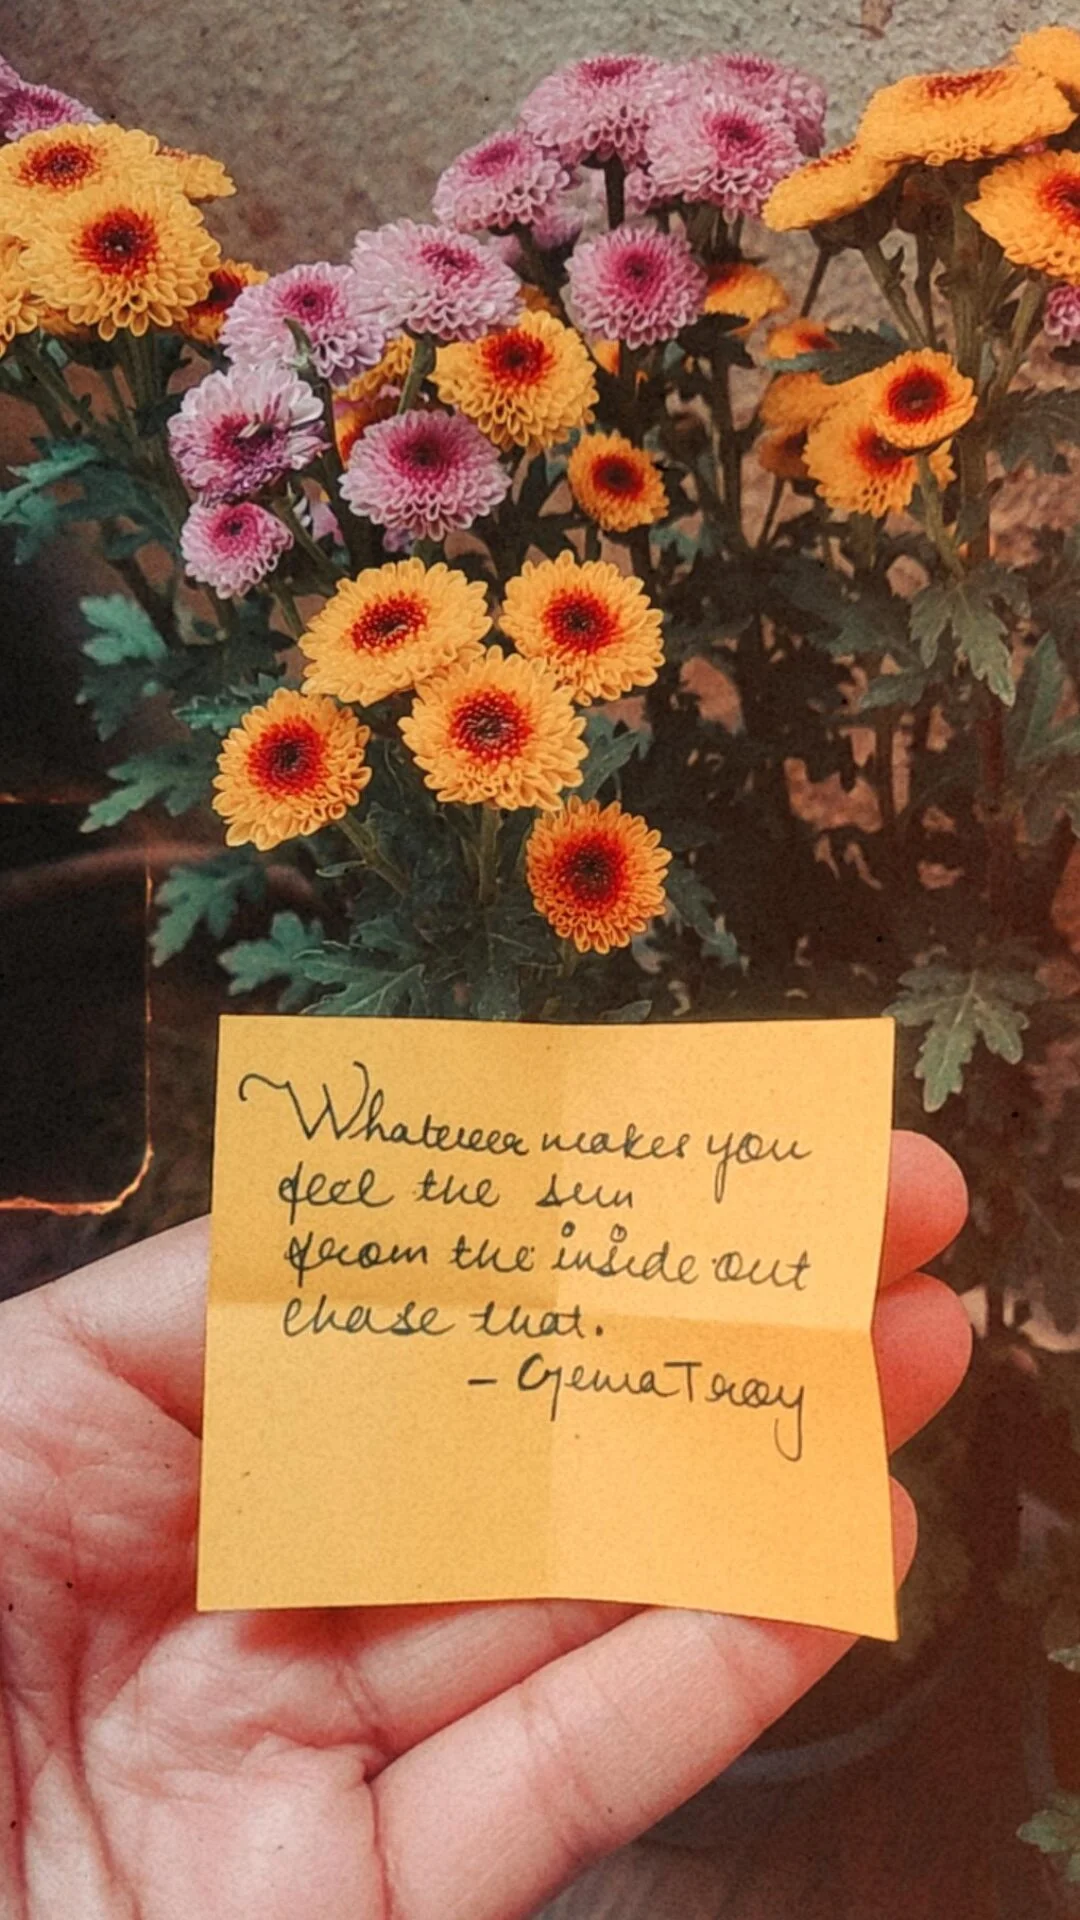 Whatever makes you
feel the sun
from the inside out
chase that.
- Gema Troy